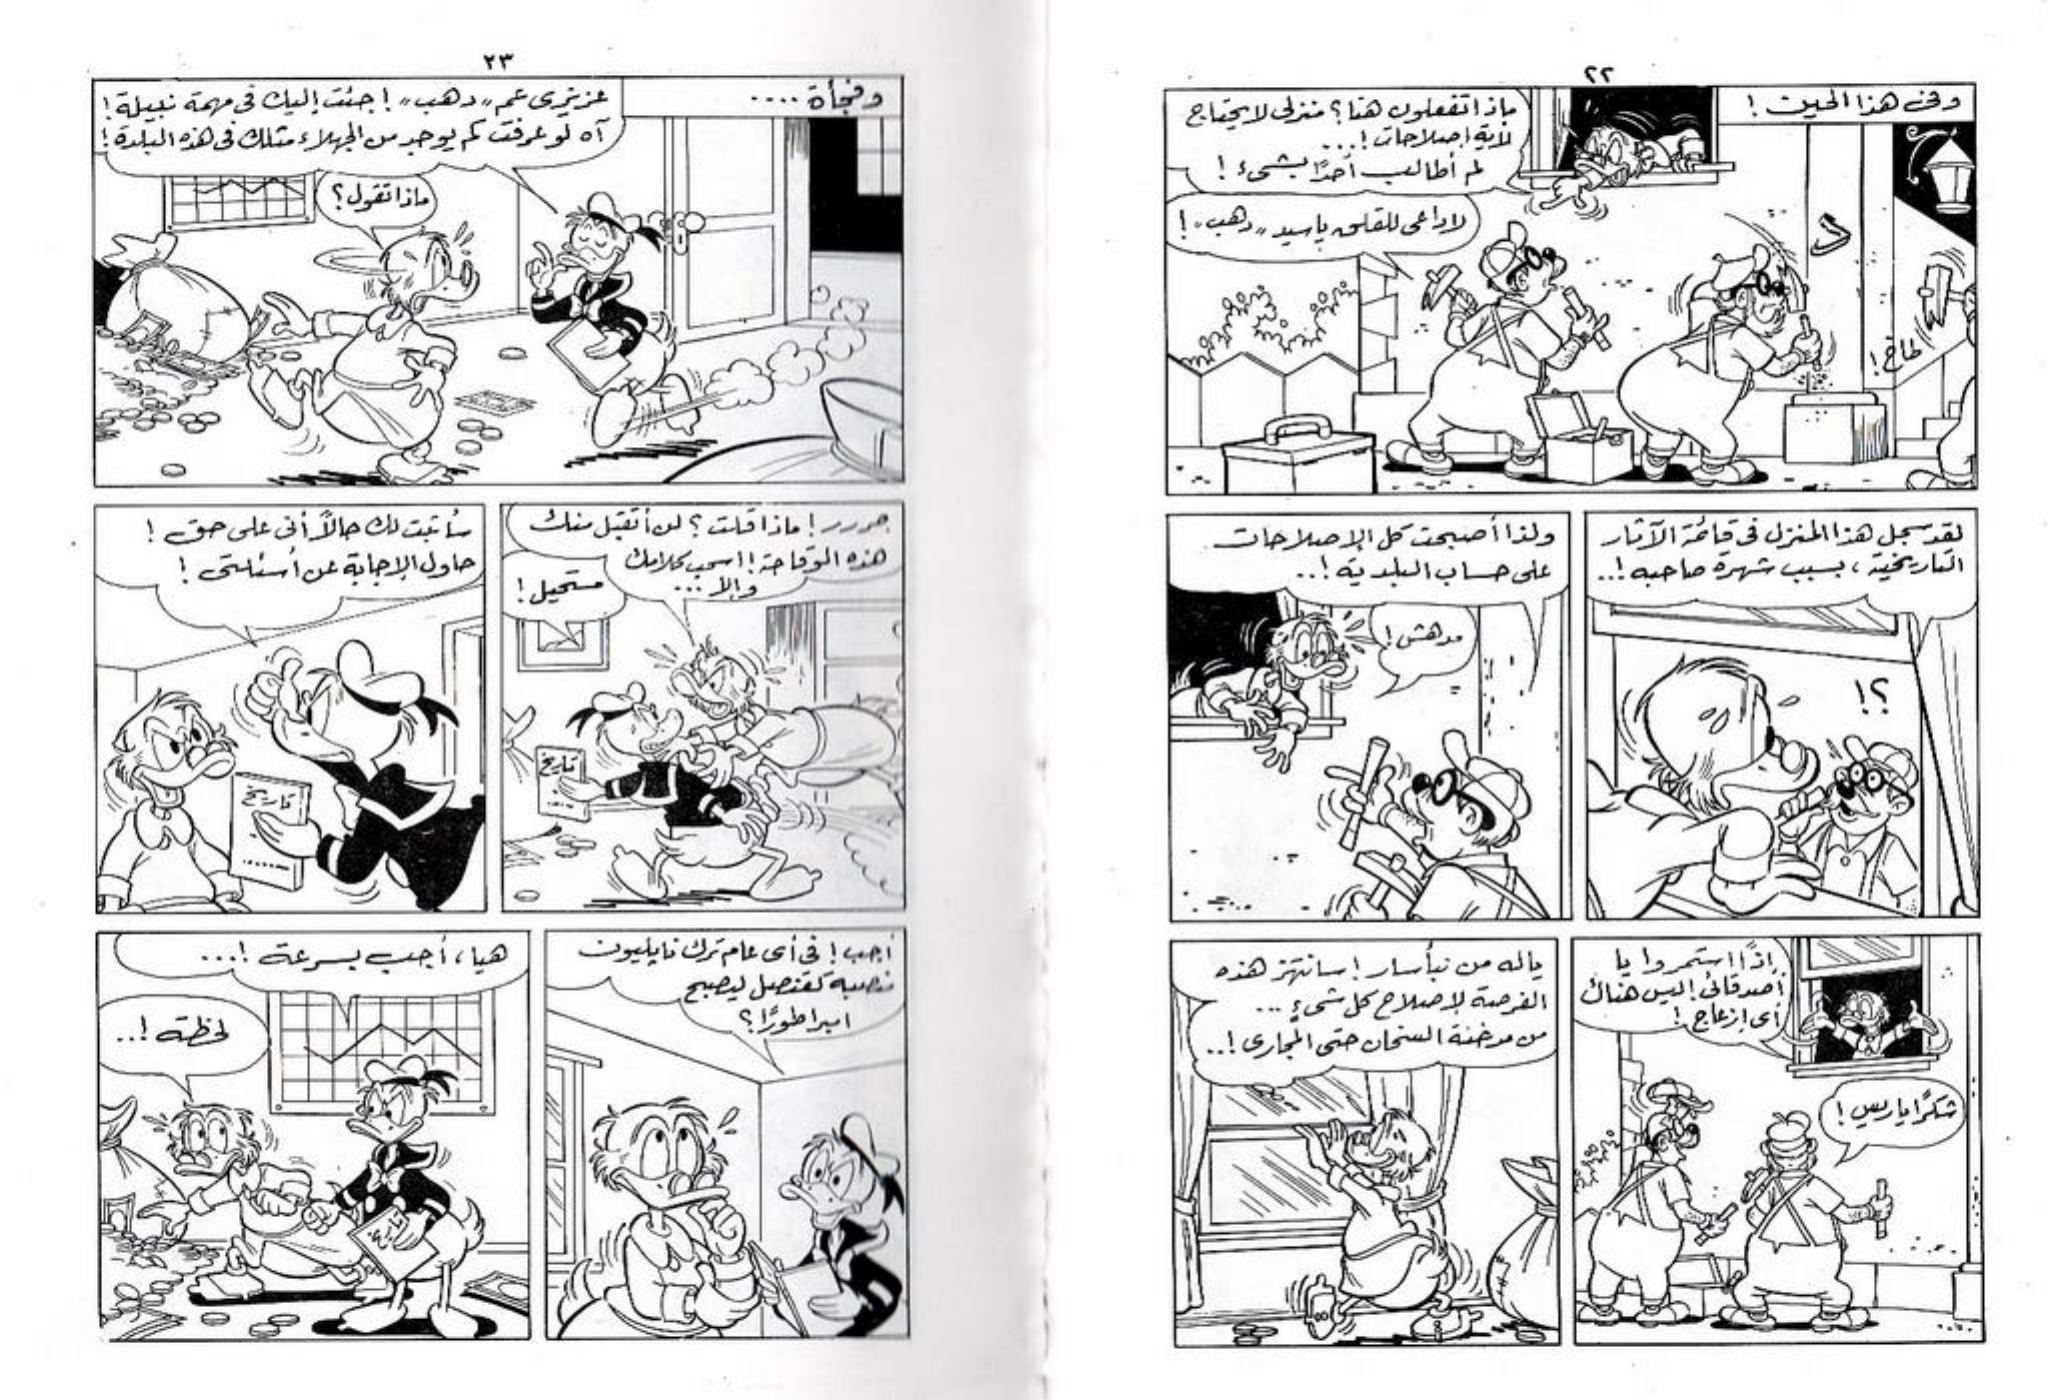 ٢٢
وفى هذا الحين !
ماذا تفعلون هنا؟ منزلى لا يحتاج
لأية إصلاحات !...
لم أطالب أحدًا بشىء !
لا داعى للقلق يا سيد „ دهب „ !
د
طاخ !
لقد سجل هذا المنزل فى قائمة الآثار
التاريخية ، بسبب شهرة صاحبه !..
؟!
ولذا أصبحت كل الإصلاحات
على حساب البلدية !..
مدهش !
إذًا استمروا يا
أصدقائى ! ليس هناك
أى إزعاج !
شكرًا يا ريس !
ياله من نبأ سار ! سأنتهز هذه
الفرصة لإصلاح كل شىء ...
من مدخنة السخان حتى المجارى !..
٢٣
وفجأة ....
عزيزى عم „ دهب „ ! جئت إليك فى مهمة نبيلة !
آه لو عرفت كم يوجد من الجهلاء مثلك فى هذه البلدة !
ماذا تقول ؟
! ماذا قلت ؟ لن أتقبل منك
هذه الوقاحة ! اسحب كلامك
وإلا ...
مستحيل !
تاريخ
سأثبت لك حالاً أنى على حق !
حاول الإجابة عن أسئلتى !
تاريخ
أجب ! فى أى عام ترك نابليون
منصبه كقنصل ليصبح
امبراطورًا ؟
هيا ، أجب بسرعة !...
لحظة !..
تاريخ